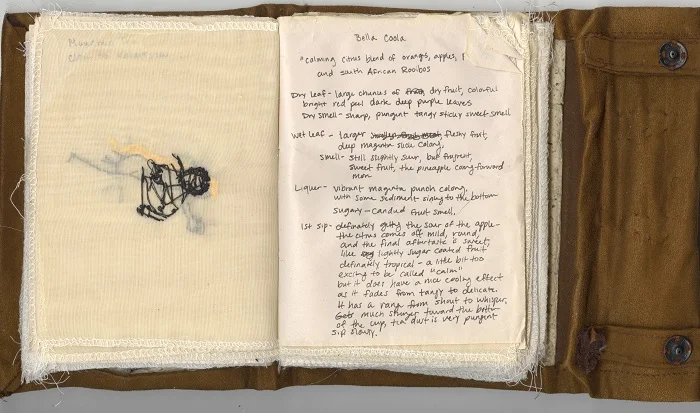 Bella Coola
"calming citrus blend of oranges, apples,
and south African Rooibos
Dry leaf - large chunks of dry fruit, colorful
bright red peel dark deep purple leaves
Dry smell - sharp, pungent tangy sticky sweet smell
Wet leaf - larger fleshy fruit,
deep magenta slide colong,
Smell - still slightly sour, but fragrent,
sweet fruit, the pineapple comg forward
more
Liquer - vibrant magenta punch colong,
with some sediment sinkg to the bottom
Sugary - Candied fruit smell.
1st sip - definately gettg the sour of the apple -
the citrus comes off mild, round,
and the final aftertaste is sweet,
like slightly sugar coated fruit
definately tropical - a little bit too
exciting to be called "calm"
but it does have a nice cooling effect
as it fades from tangy to delicate.
It has a range from shout to whisper,
Got much stronger toward the bottom
of the cup, tea dust is very pungent
sip slowly.